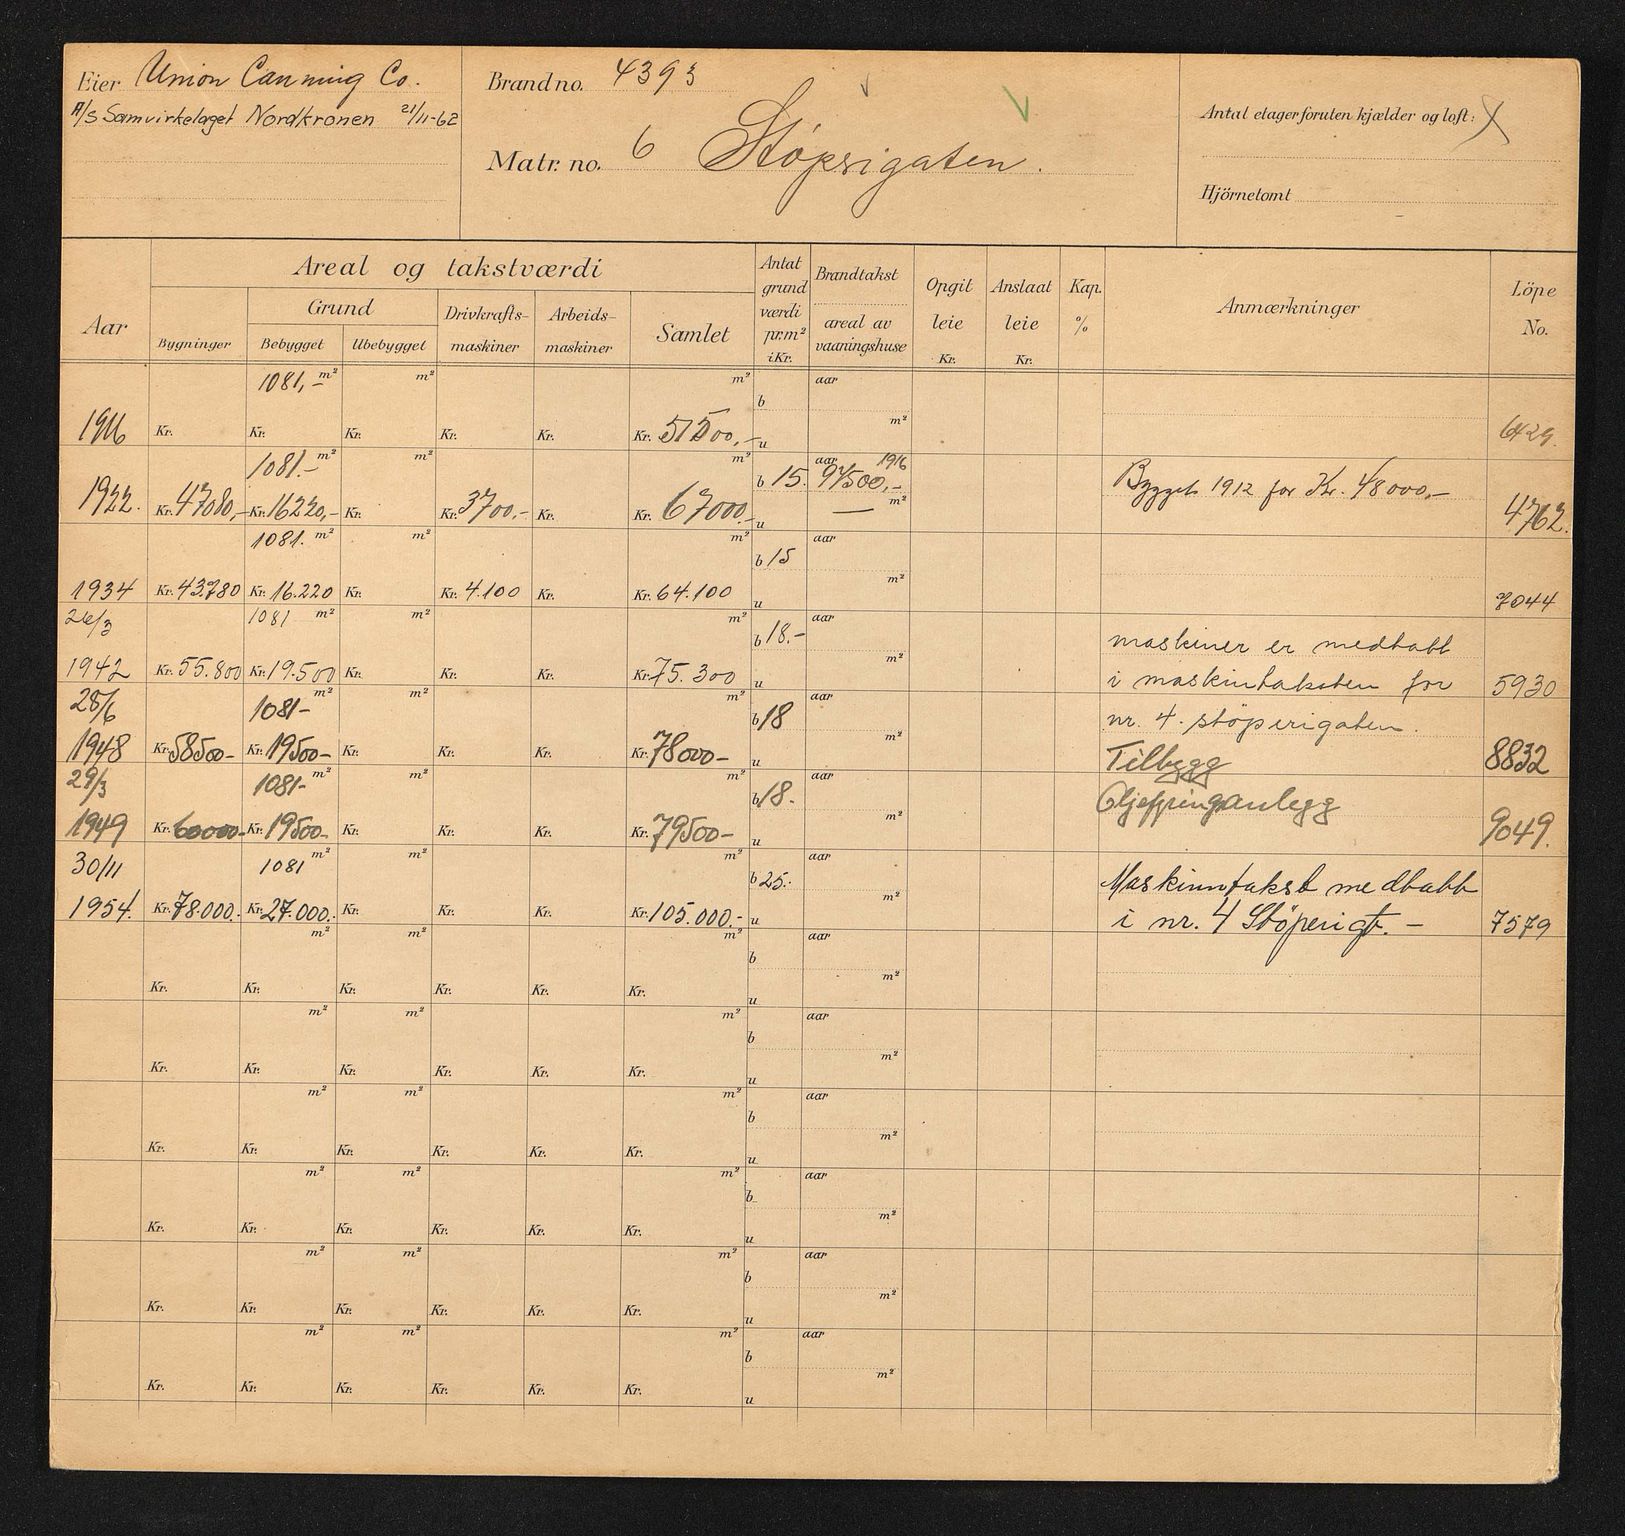 Eier Union Canning Co.
A/S Samvirkelaget Nordkronen 21/11-62
Brandno. 4393
Matr. no. 6 Stöperigaten.
Antal etager foruten kjælder og loft:
Hjörnetomt
Aar
Areal og takstværdi
Grund
Bygninger Bebygget Ubebygget
Drivkrafts-maskiner
Arbeids-maskiner
Samlet
Antat grund værdi pr. m² i Kr.
Brandtakst
areal av vaaningshuse
Opgit leie Kr.
Anslaat leie Kr.
Kap. %
Anmærkninger
Löpe No.
1081,- m² m² m² aar
b
m²
1916 Kr. Kr. Kr. Kr. Kr. Kr. 51500,- u 6429.
1081.- m² m² m² aar 1916
b 15. 97500,- Bygget 1912 for Kr. 48000,-
m²
1922. Kr. 47080,- Kr. 16220,- Kr. Kr. 3700,- Kr. Kr. 67000,- u 4762.
1081. m² m² m² aar
b 15
m²
1934 Kr. 43780 Kr. 16.220 Kr. Kr. 4.100 Kr. Kr. 64.100 u 7044
26/3 1081 m² m² m² aar
b 18.- maskiner er medtatt
m²
1942 Kr. 55.800 Kr. 19.500 Kr. Kr. Kr. Kr. 75.300 u i maskintaksten for 5930
28/6 1081- m² m² m² aar
b 18 nr. 4. stöperigaten.
m²
1948 Kr. 58500- Kr. 19500- Kr. Kr. Kr. Kr. 78000- u Tilbygg 8832
29/3 1081- m² m² m² aar
b 18. Oljefyringsanlegg
m²
1949 Kr. 60000- Kr. 19500- Kr. Kr. Kr. Kr. 79500- u 9049.
30/11 1081 m² m² m² aar
b 25.- Maskinntakst medtatt
m²
1954. Kr. 78.000.- Kr. 27.000.- Kr. Kr. Kr. Kr. 105.000.- u i nr. 4 Stöperigt. - 7579
m² m² m² aar
b
m²
Kr. Kr. Kr. Kr. Kr. Kr. u
m² m² m² aar
b
m²
Kr. Kr. Kr. Kr. Kr. Kr. u
m² m² m² aar
b
m²
Kr. Kr. Kr. Kr. Kr. Kr. u
m² m² m² aar
b
m²
Kr. Kr. Kr. Kr. Kr. Kr. u
m² m² m² aar
b
m²
Kr. Kr. Kr. Kr. Kr. Kr. u
m² m² m² aar
b
m²
Kr. Kr. Kr. Kr. Kr. Kr. u